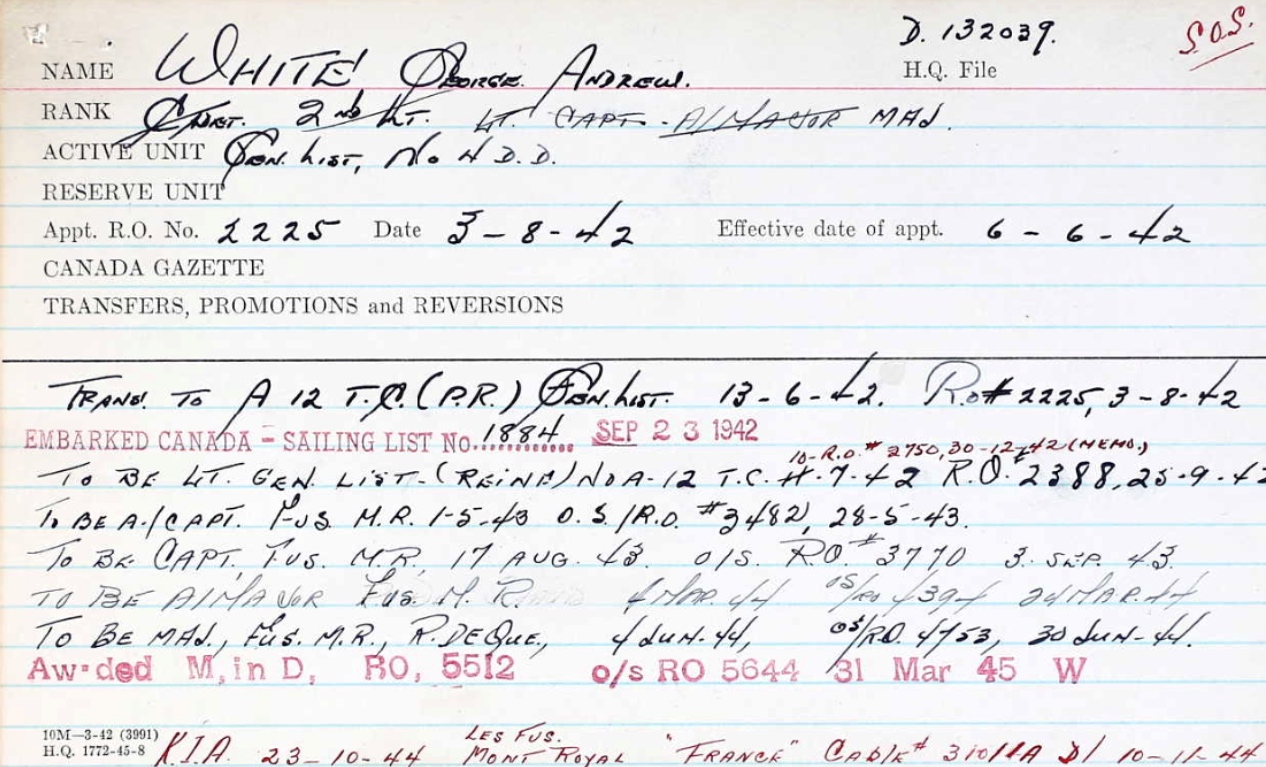 D. 132039. S.O.S.
NAME WHITE George Andrew. H.Q. File
RANK Cadet. 2nd Lt. Lt. Capt. A/Major Maj.
ACTIVE UNIT Gen. List, No 4 D.D.
RESERVE UNIT
Appt. R.O. No. 2225 Date 3-8-42 Effective date of appt. 6-6-42
CANADA GAZETTE
TRANSFERS, PROMOTIONS and REVERSIONS
Trans. To A 12 T.C. (P.R.) Gen. List. 13-6-42. R.O# 2225, 3-8-42
EMBARKED CANADA - SAILING LIST No. 1884 SEP 23 1942
10-R.O.# 2750, 30-12-42 (MEMO.)
To BE LT. GEN. LIST-(REINF) No A-12 T.C. 4-7-42 R.O.# 2388, 25-9-42
To BE A/CAPT. Fus. M.R. 1-5-43 O.S./R.O. #3482, 28-5-43.
To BE CAPT. Fus. M.R. 17 AUG. 43. O/S. RO.# 3770 3. SEP. 43.
TO BE A/MAJOR Fus. M. R. 4 MAR. 44 OS/RO 4394 24 MAR. 44
To BE MAJ., Fus. M.R., R. DE QUE., 4 JUN-44, OS/RO. 4753, 30 JUN-44.
Aw ded M, in D, RO, 5512 o/s RO 5644 31 Mar 45 W
10M—3-42 (3991)
H.Q. 1772-45-8
K.I.A. 23-10-44 LES FUS. MONT ROYAL "FRANCE" CABLE# D/ 10-11-44